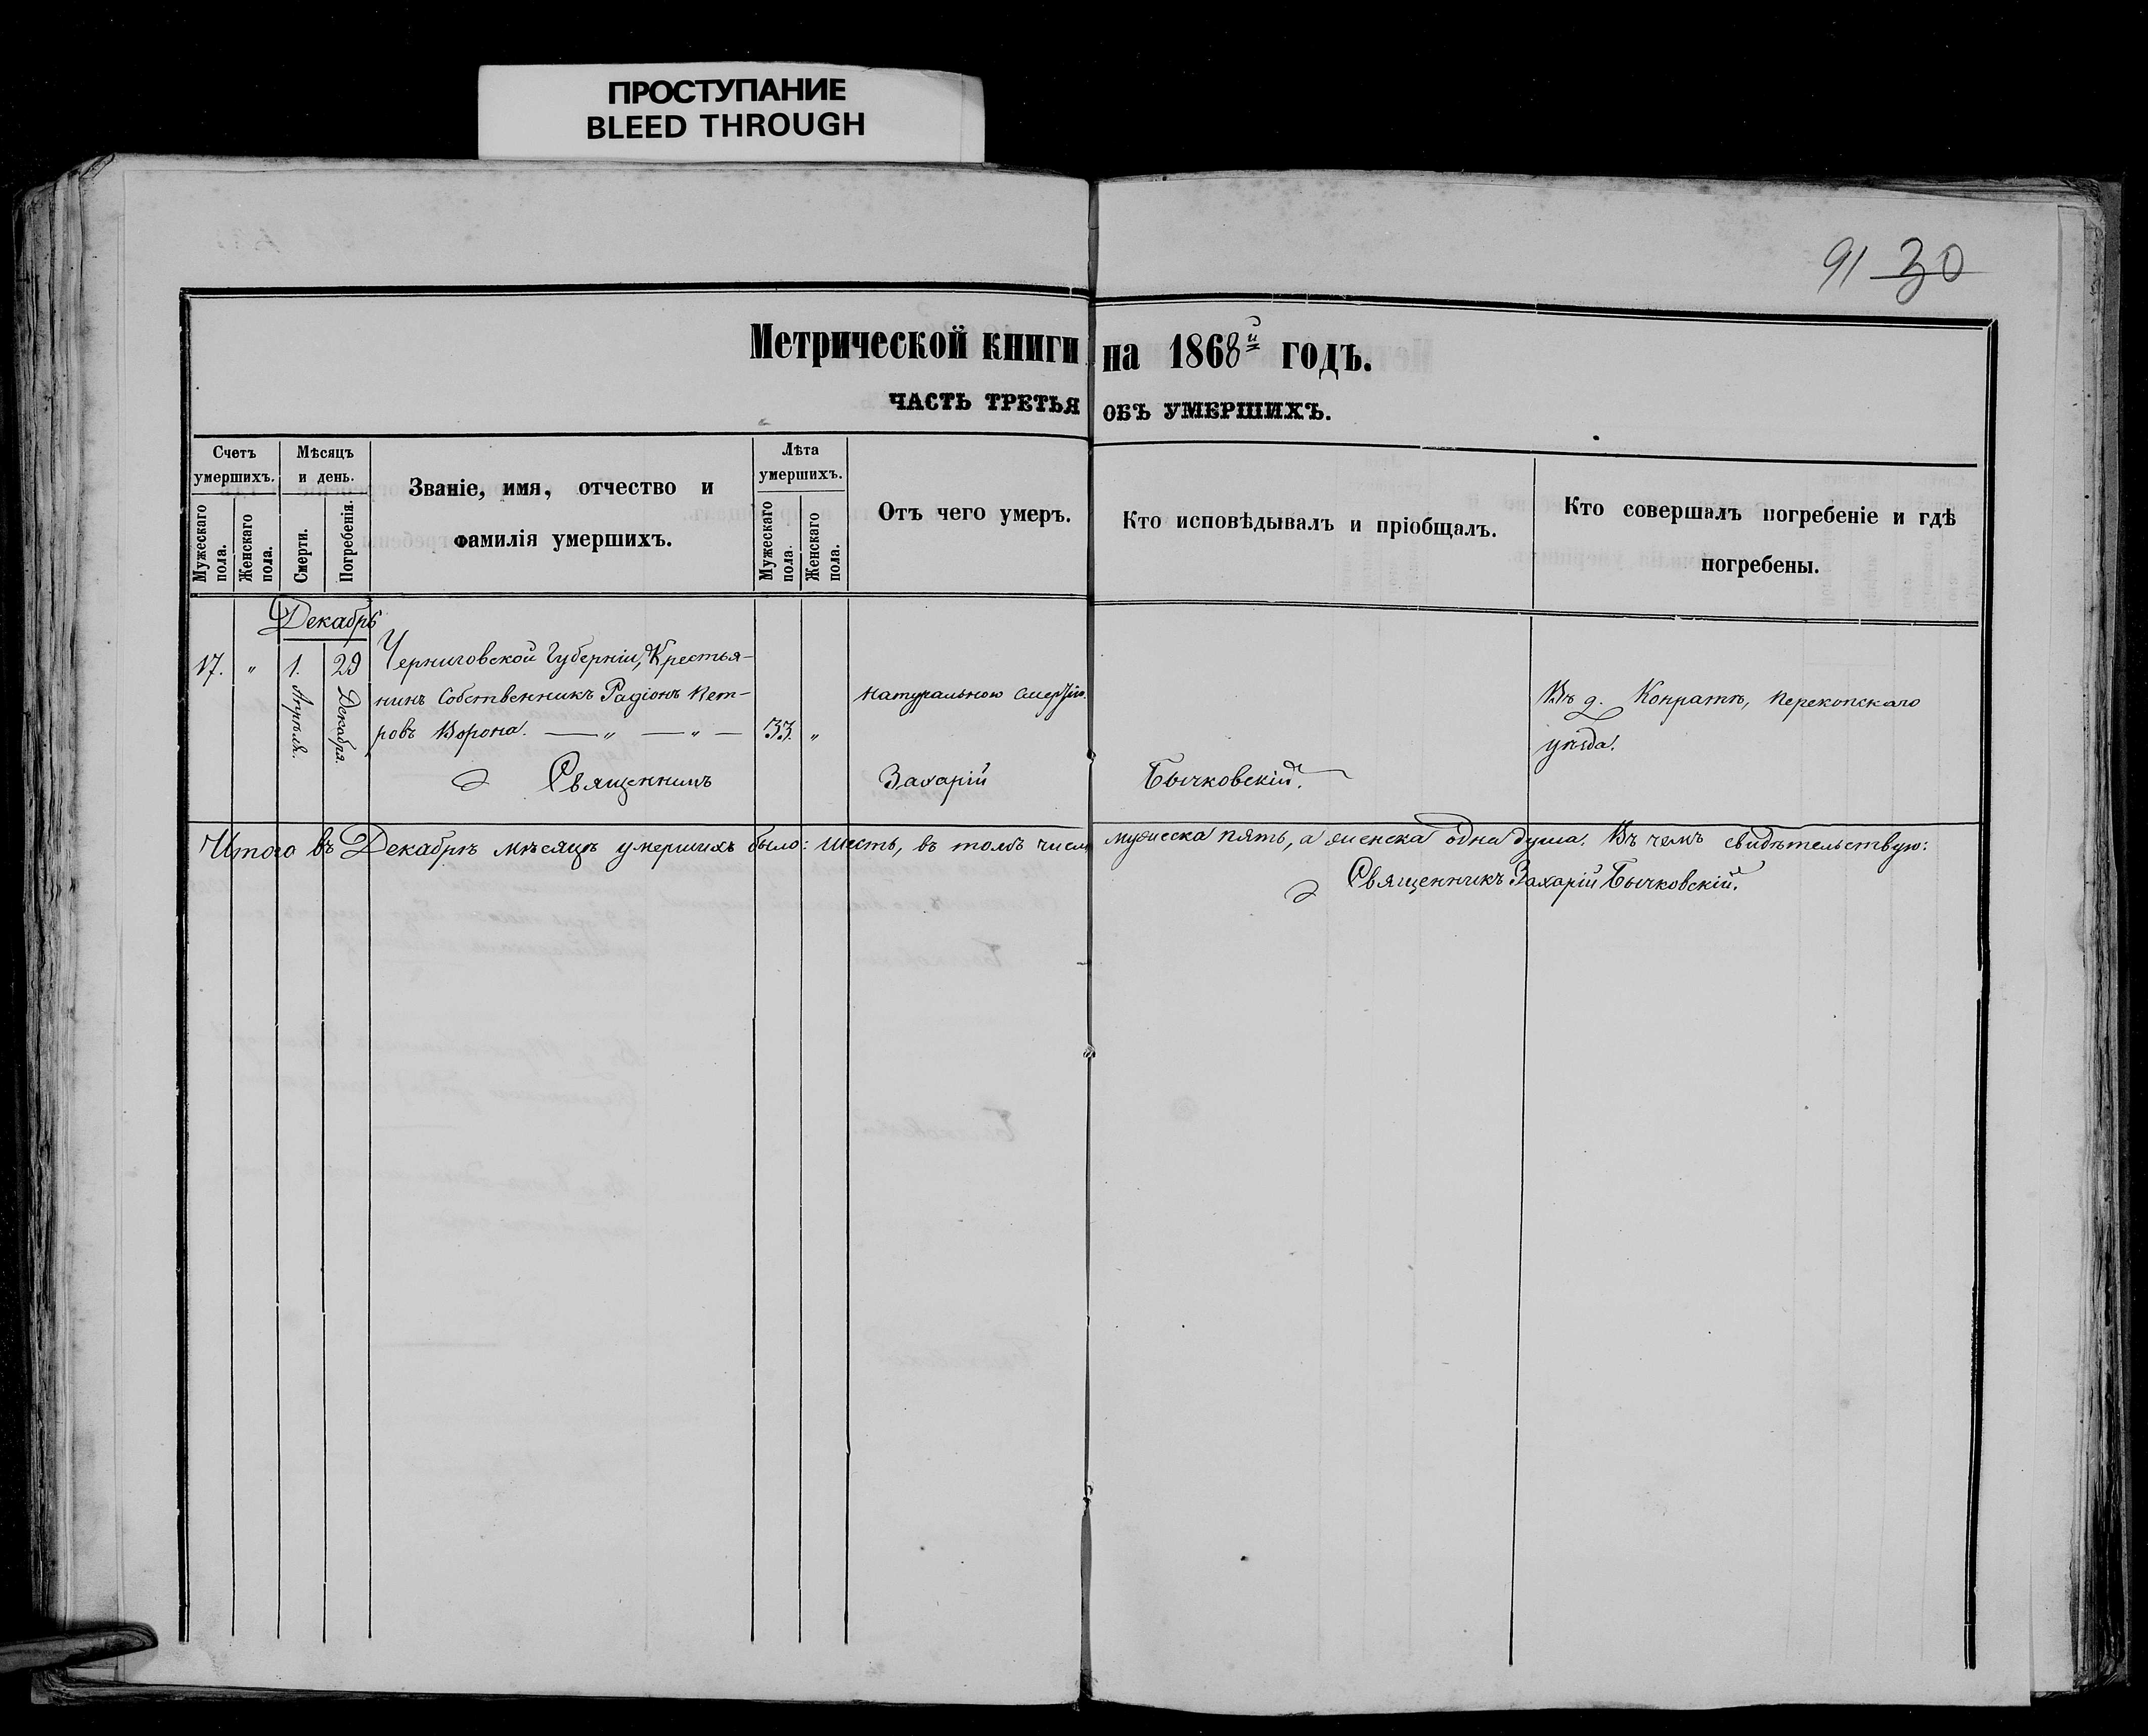 ПРОСТУПАНИЕ
BLEED THROUGH
91 30
Метрической книги на 1868й годъ.
ЧАСТЬ ТРЕТЬЯ ОБЪ УМЕРШИХЪ.
Счетъ умершихъ.
Мужескаго пола.
Женскаго пола.
Мѣсяцъ и день.
Смерти.
Погребенія.
Званіе, имя, отчество и
фамилія умершихъ.
Лѣта умершихъ.
Мужескаго пола.
Женскаго пола.
Отъ чего умеръ.
Кто исповѣдывалъ и пріобщалъ.
Кто совершалъ погребеніе и гдѣ
погребены.
Декабрь
17. " 1. Апрѣля. 29 Декабря.
Черниговской Губерніи, Крестья-
нинъ Собственникъ Радіонъ Пет-
ровъ Ворона. — " — " —
33. "
Натуральною смертію.
Въ д. Конратъ, Перекопскаго
уѣзда.
Священникъ Захарій Бычковскій.
Итого въ Декабрѣ мѣсяцѣ умершихъ было: шесть, въ томъ числѣ мужеска пять, а женска одна душа. Въ чемъ свидѣтельствую:
Священникъ Захарій Бычковскій.